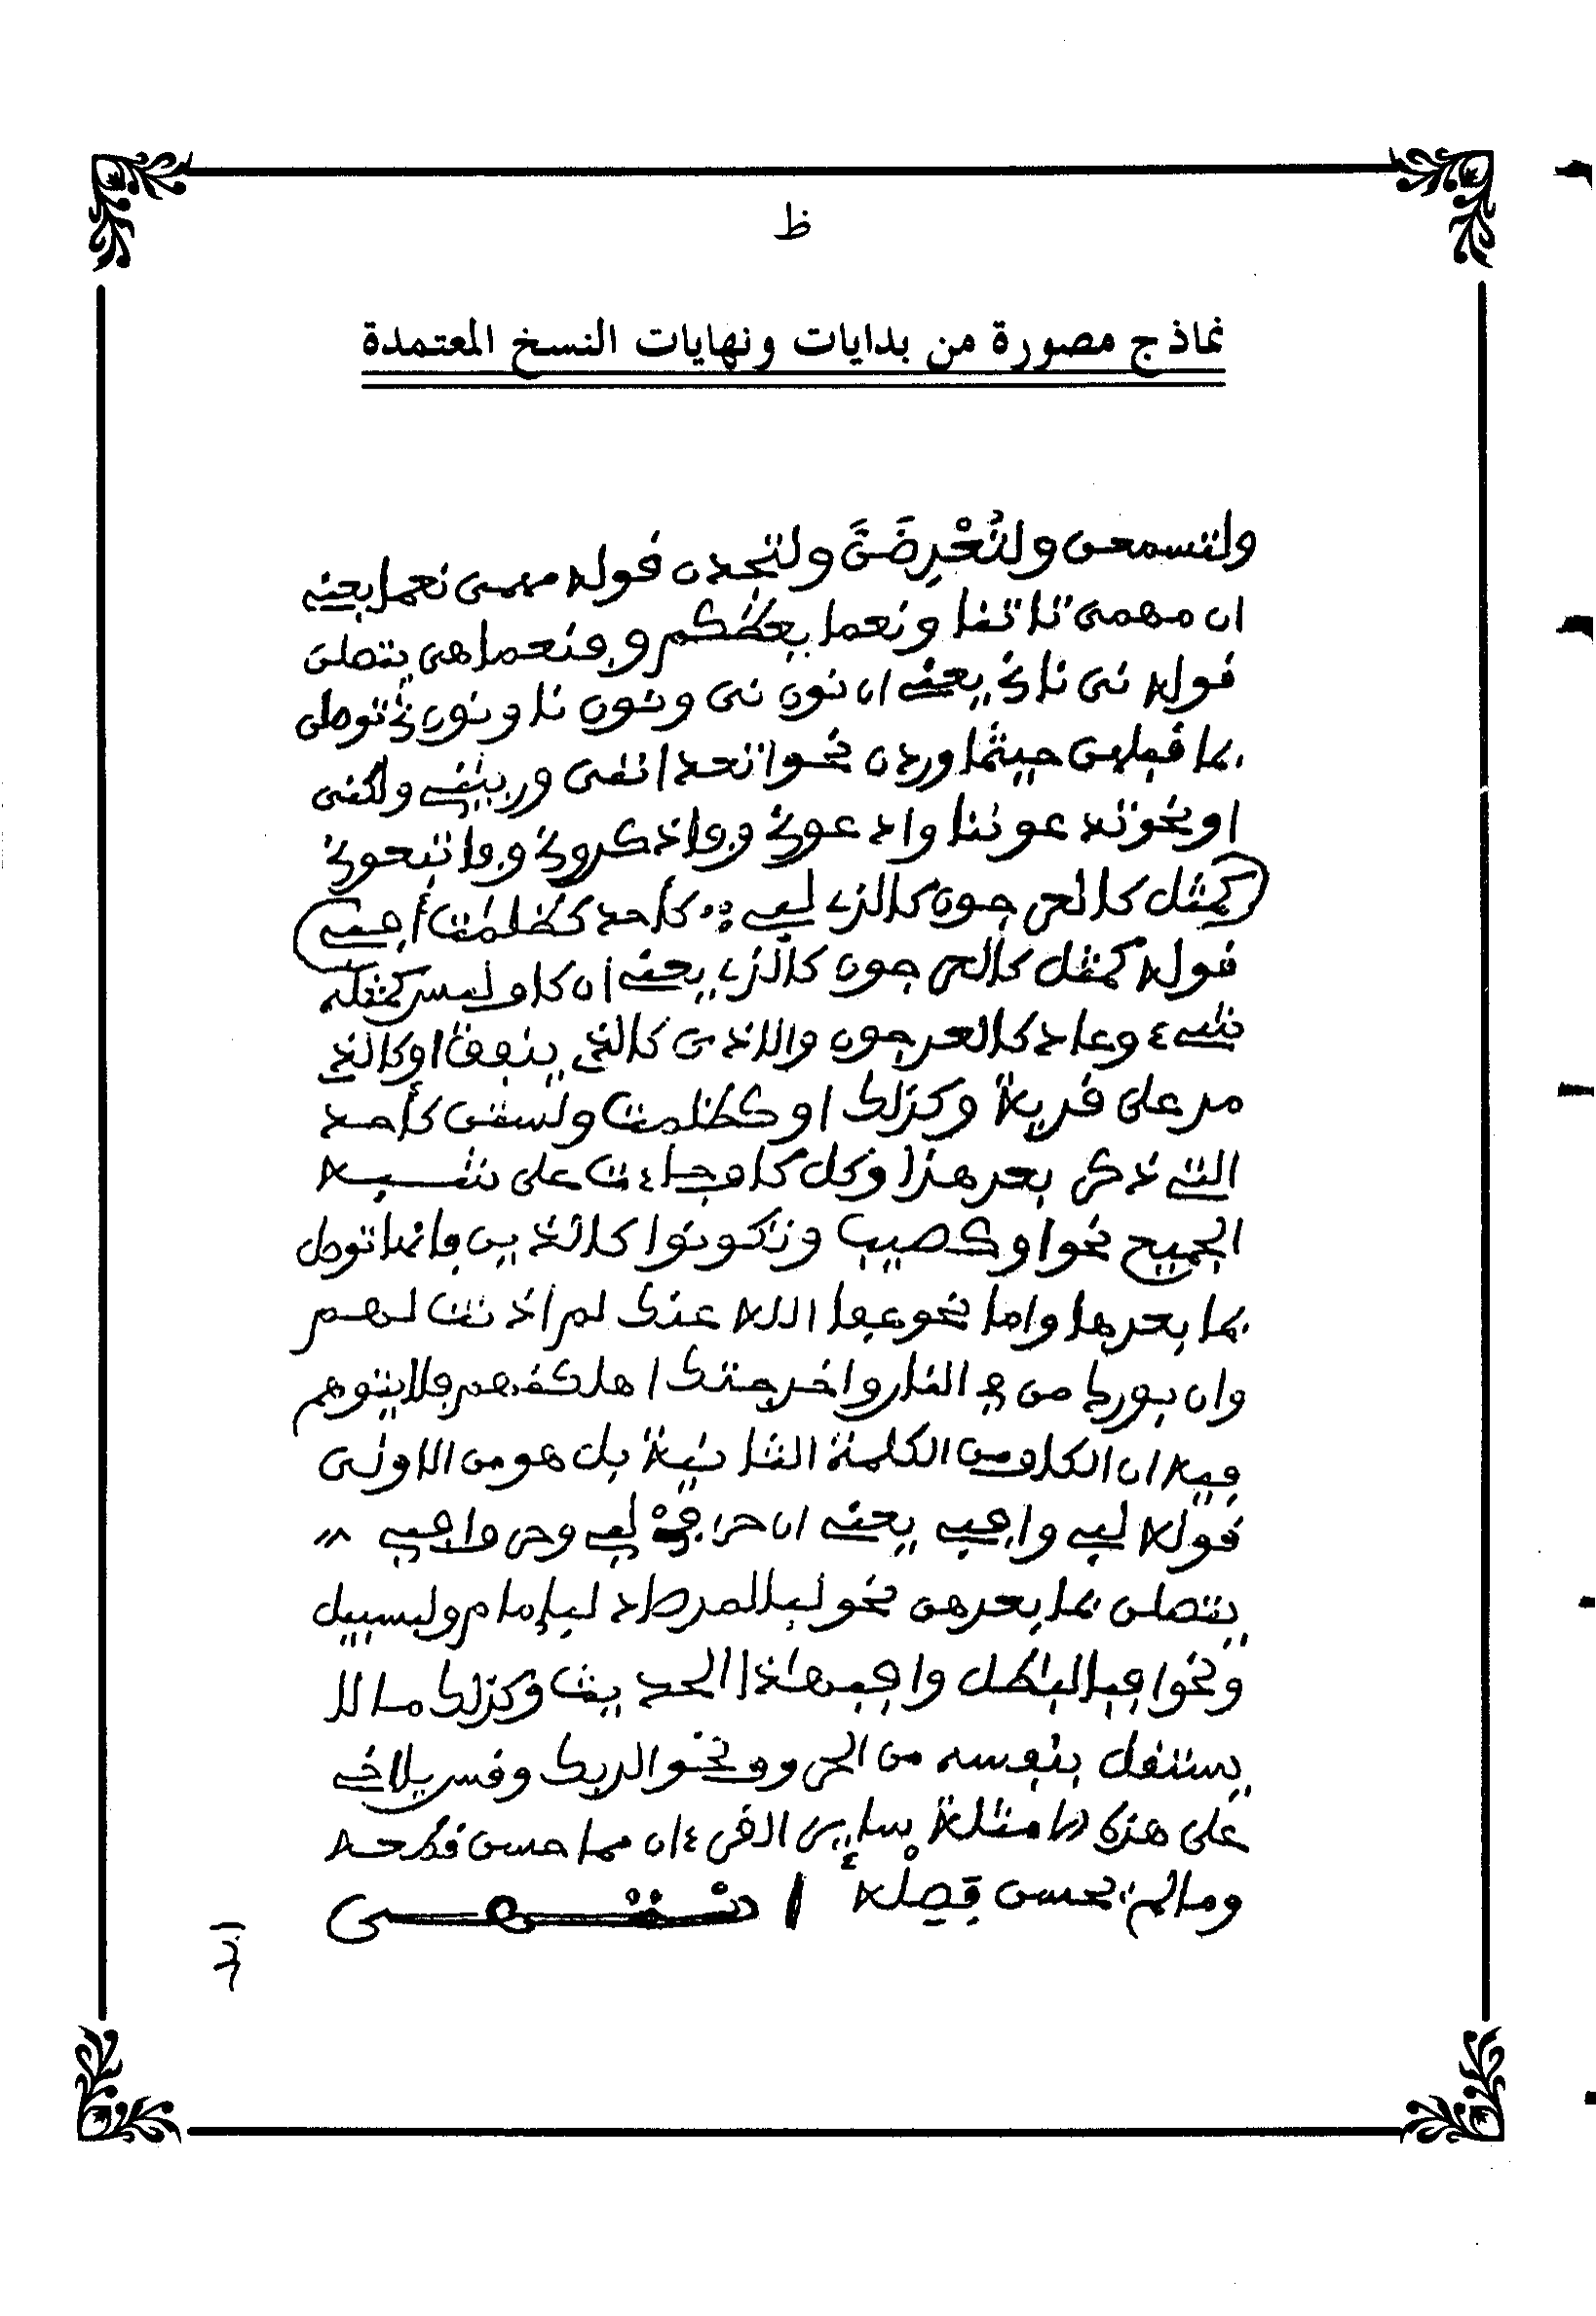 ظ
نماذج مصورة من بدايات ونهايات النسخ المعتمدة
ولتسمعن ولتُعْرِضَنَّ ولتجدن قوله مهمى نعما يعني
ان مهمى تاتنا ونعما يعظكم وفنعما هى يتصلن
قوله نى نا ني يعني ان نون نى ونون نا ونون ني توصل
بما قبلهن حيثما وردن نحو اتعدانني وربيني ولكنى
او نحو تدعوننا وادعوني وفاذكروني وفاتبعوني
كمثل كالعرجون كالذي لفي كأحد كظلمت أفي
قوله كمثل كالعرجون كالذي يعني أن كاف ليس كمثله
شيء وعاد كالعرجون والاذى كالذي ينفق او كالذي
مر على قرية وكذلك او كظلمت ولستن كأحد
التي ذكر بعد هذا وكل كاف جاءت على نسبة
الجميع نحو او كصيب وتكونوا كالذين فانما توصل
بما بعدها واما نحو عفا الله عنك لم أذنت لهم
وان بورك من في النار واخرجتك اهلكنهم فلا يتوهم
فيه ان الكاف من الكلمة الثانية بل هو من الاولى
قوله لفي وافي يعني ان حرف في لفي وحرف افي
يتصلن بما بعدهن نحو لبالمرصاد لبإمام ولبسبيل
ونحو افبالباطل وافبهاذا الحديث وكذلك ما لا
يستقل بنفسه من الحروف نحو الربك وقس يلاخي
على هذه الامثلة سايرن القرءان مما حسن قطعه
وما لم يحسن فصله انتهى